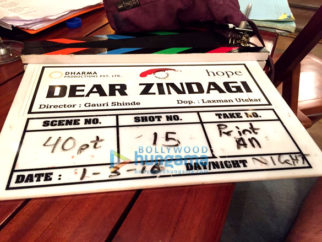 DHARMA
PRODUCTIONS PVT. LTD.
hope
DEAR ZINDAGI
Director : Gauri Shinde Dop. : Laxman Utekar
SCENE NO. SHOT NO. TAKE NO.
40pt 15 Print
All
BOLLYWOOD
hungama
DATE : 1-3-16 DAY/NIGHT NIGHT